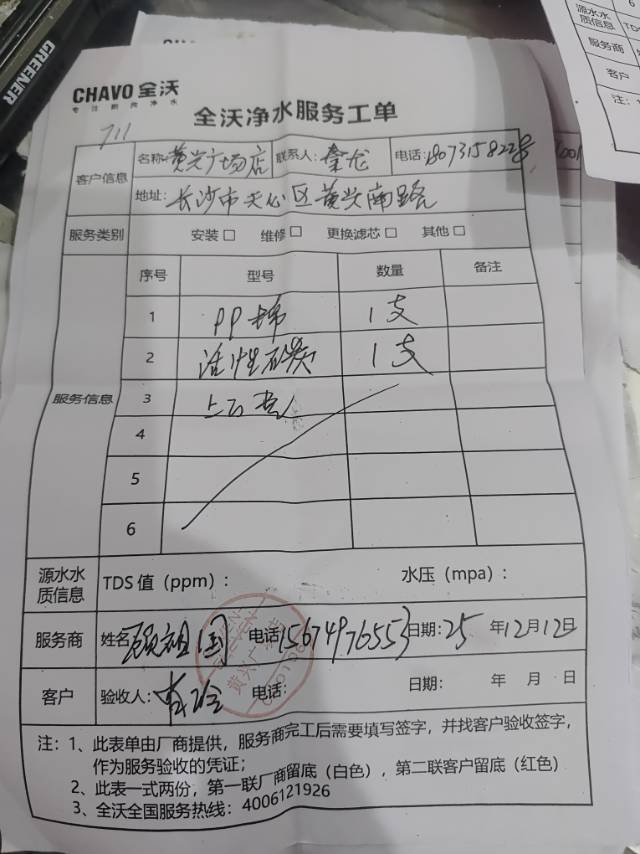 GREENER
CHAVO 全沃
专注厨房净水
全沃净水服务工单
711
客户信息 名称: 黄兴广场店 联系人: 秦龙 电话:
地址: 长沙市天心区黄兴南路
服务类别 安装 □ 维修 □ 更换滤芯 □ 其他 □
服务信息 序号 型号 数量 备注
1 PP棉 1支
2 活性碳 1支
3
4
5
6
源水水质信息 TDS 值(ppm): 水压(mpa):
服务商 姓名 顾祖国 电话 15674976553 日期: 25 年 12月 12日
客户 验收人: 电话: 日期: 年 月 日
注: 1、此表单由厂商提供,服务商完工后需要填写签字,并找客户验收签字,
作为服务验收的凭证;
2、此表一式两份,第一联厂商留底(白色),第二联客户留底(红色)
3、全沃全国服务热线: 4006121926
黄兴广场店
6
源水水
质信息 TDS
服务商
客户
注: